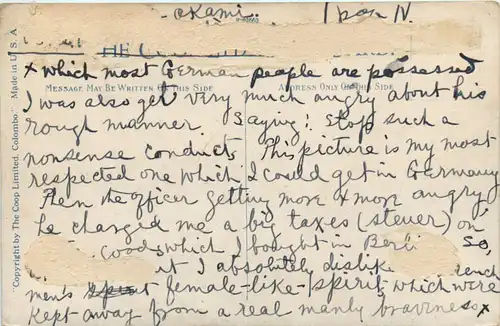 -okami-
THE CO
Copyright by The Coop Limited, Colombo. Made in U.S.A
MESSAGE MAY BE WRITTEN ON THIS SIDE
ADDRESS ONLY ON THIS SIDE
x which most German people are possessed
I was also get very much angry about his
rough manner. Saying: Stop such a
nonsense conducts. This picture is my most
respected one which I could get in Germany
Then the officer getting more & more angry
he charged me a big taxes (steuer) on
goods, which I bought in Berli So,
it I absolutely dislike ench
men's female-like-spirit which were
kept away from a real manly braviness x